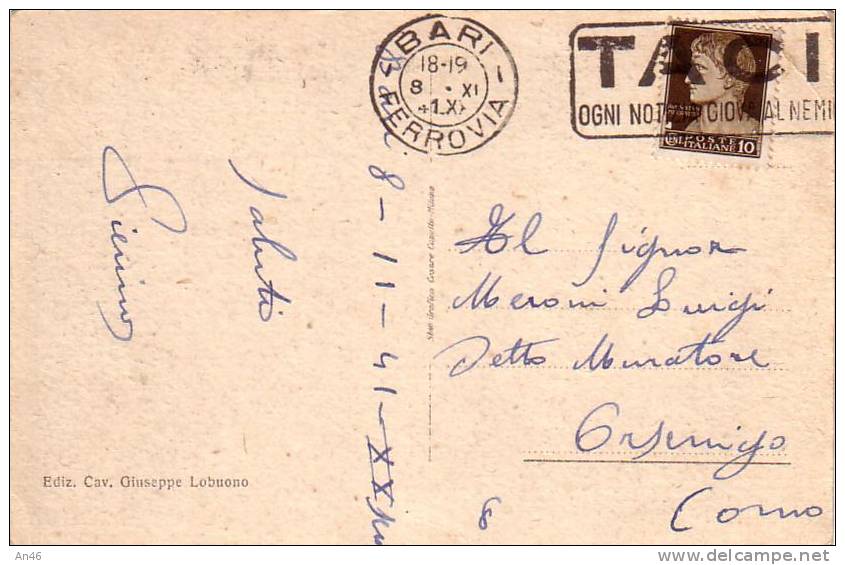 BARI
18-19
8 · XI
41.XX
FERROVIA
TACI
OGNI NOT GIOVA AL NEMI
POSTE
ITALIANE
CENT 10
Bari 8-11-41-XX
Saluti
Al Signor
Meroni Luigi
Detto Muratore
Orsenigo
Como
8
Stab. Grafico Cesare Capello-Milano
Ediz. Cav. Giuseppe Lobuono
An46
delcampe.net